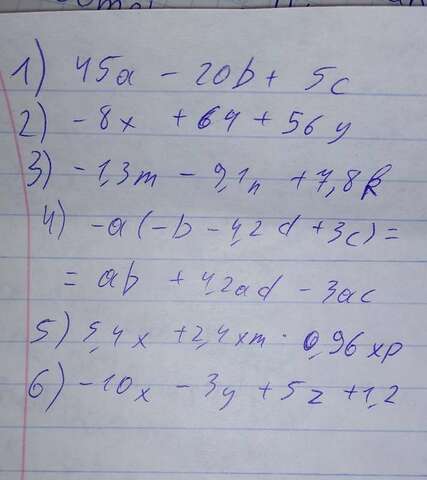 1) 45a - 20b + 5c
2) -8x + 64 + 56y
3) -1,3m - 9,1n + 7,8k
4) -a(-b - 4,2d + 3c) =
= ab + 4,2ad - 3ac
5) 5,4x + 2,4xm · 0,96xp
6) -10x - 3y + 5z + 1,2